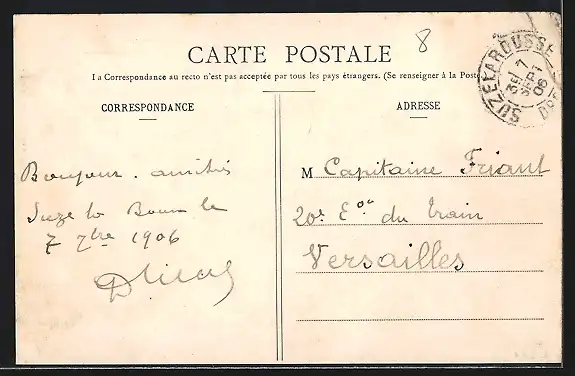 8
CARTE POSTALE
La Correspondance au recto n'est pas acceptée par tous les pays étrangers. (Se renseigner à la Poste
CORRESPONDANCE
ADRESSE
SUZE LA ROUSSE
7
SEPT
06
Bonjour. amitiés
Suze la Rousse le
7 7bre 1906
M Capitaine Friant
20e Eon du train
Versailles